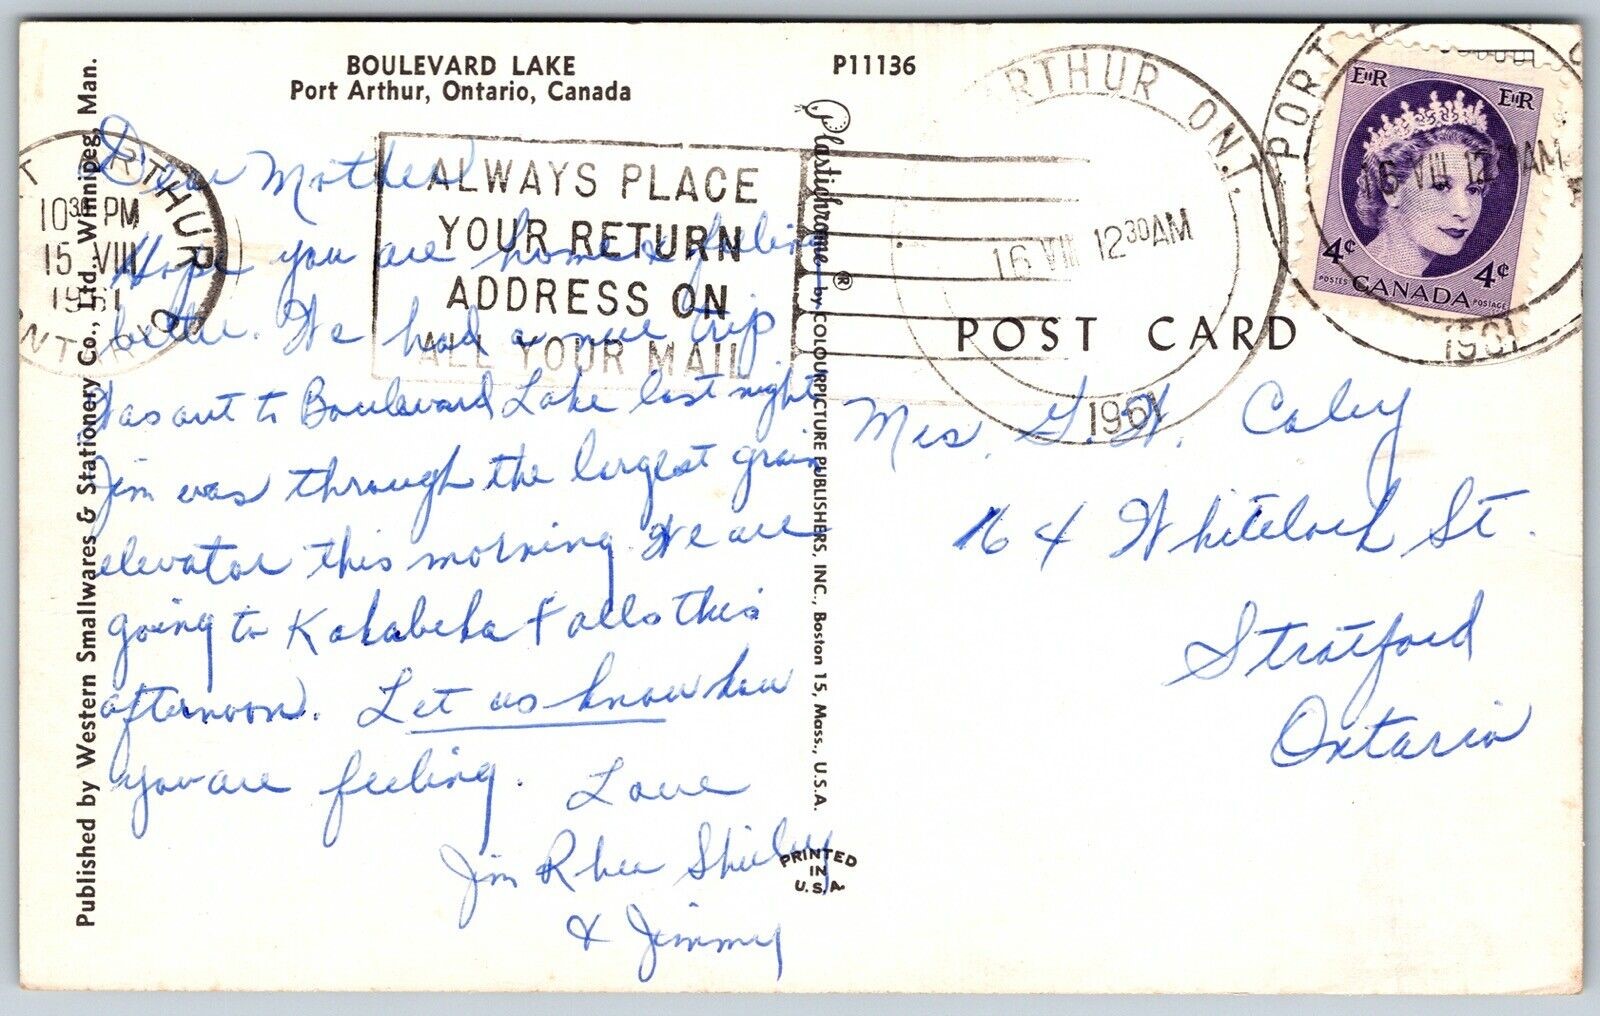 BOULEVARD LAKE
Port Arthur, Ontario, Canada
P11136
Dear Mother
Hope you are home & feeling
better. We had a nice trip
Was out to Boulevard Lake last night
Jim was through the largest grain
elevator this morning. We are
going to Kakabeka Falls this
afternoon. Let us know how
you are feeling. Love
Jim Rhea Shirley
& Jimmy
10 30 PM
15 VIII
1961
ALWAYS PLACE
YOUR RETURN
ADDRESS ON
ALL YOUR MAIL
ARTHUR ONT.
16 VIII 12 30 AM
1961
PORT
16 VIII 12 30 AM
1961
EIIR
EIIR
4¢
4¢
POSTES POSTAGE
CANADA
POST CARD
Mrs. G. W. Caley
164 Whitelock St.
Stratford
Ontario
Published by Western Smallwares & Stationery Co., Ltd., Winnipeg, Man.
Plastichrome ® by COLOURPICTURE PUBLISHERS, INC., Boston 15, Mass., U.S.A.
PRINTED
IN
U.S.A.